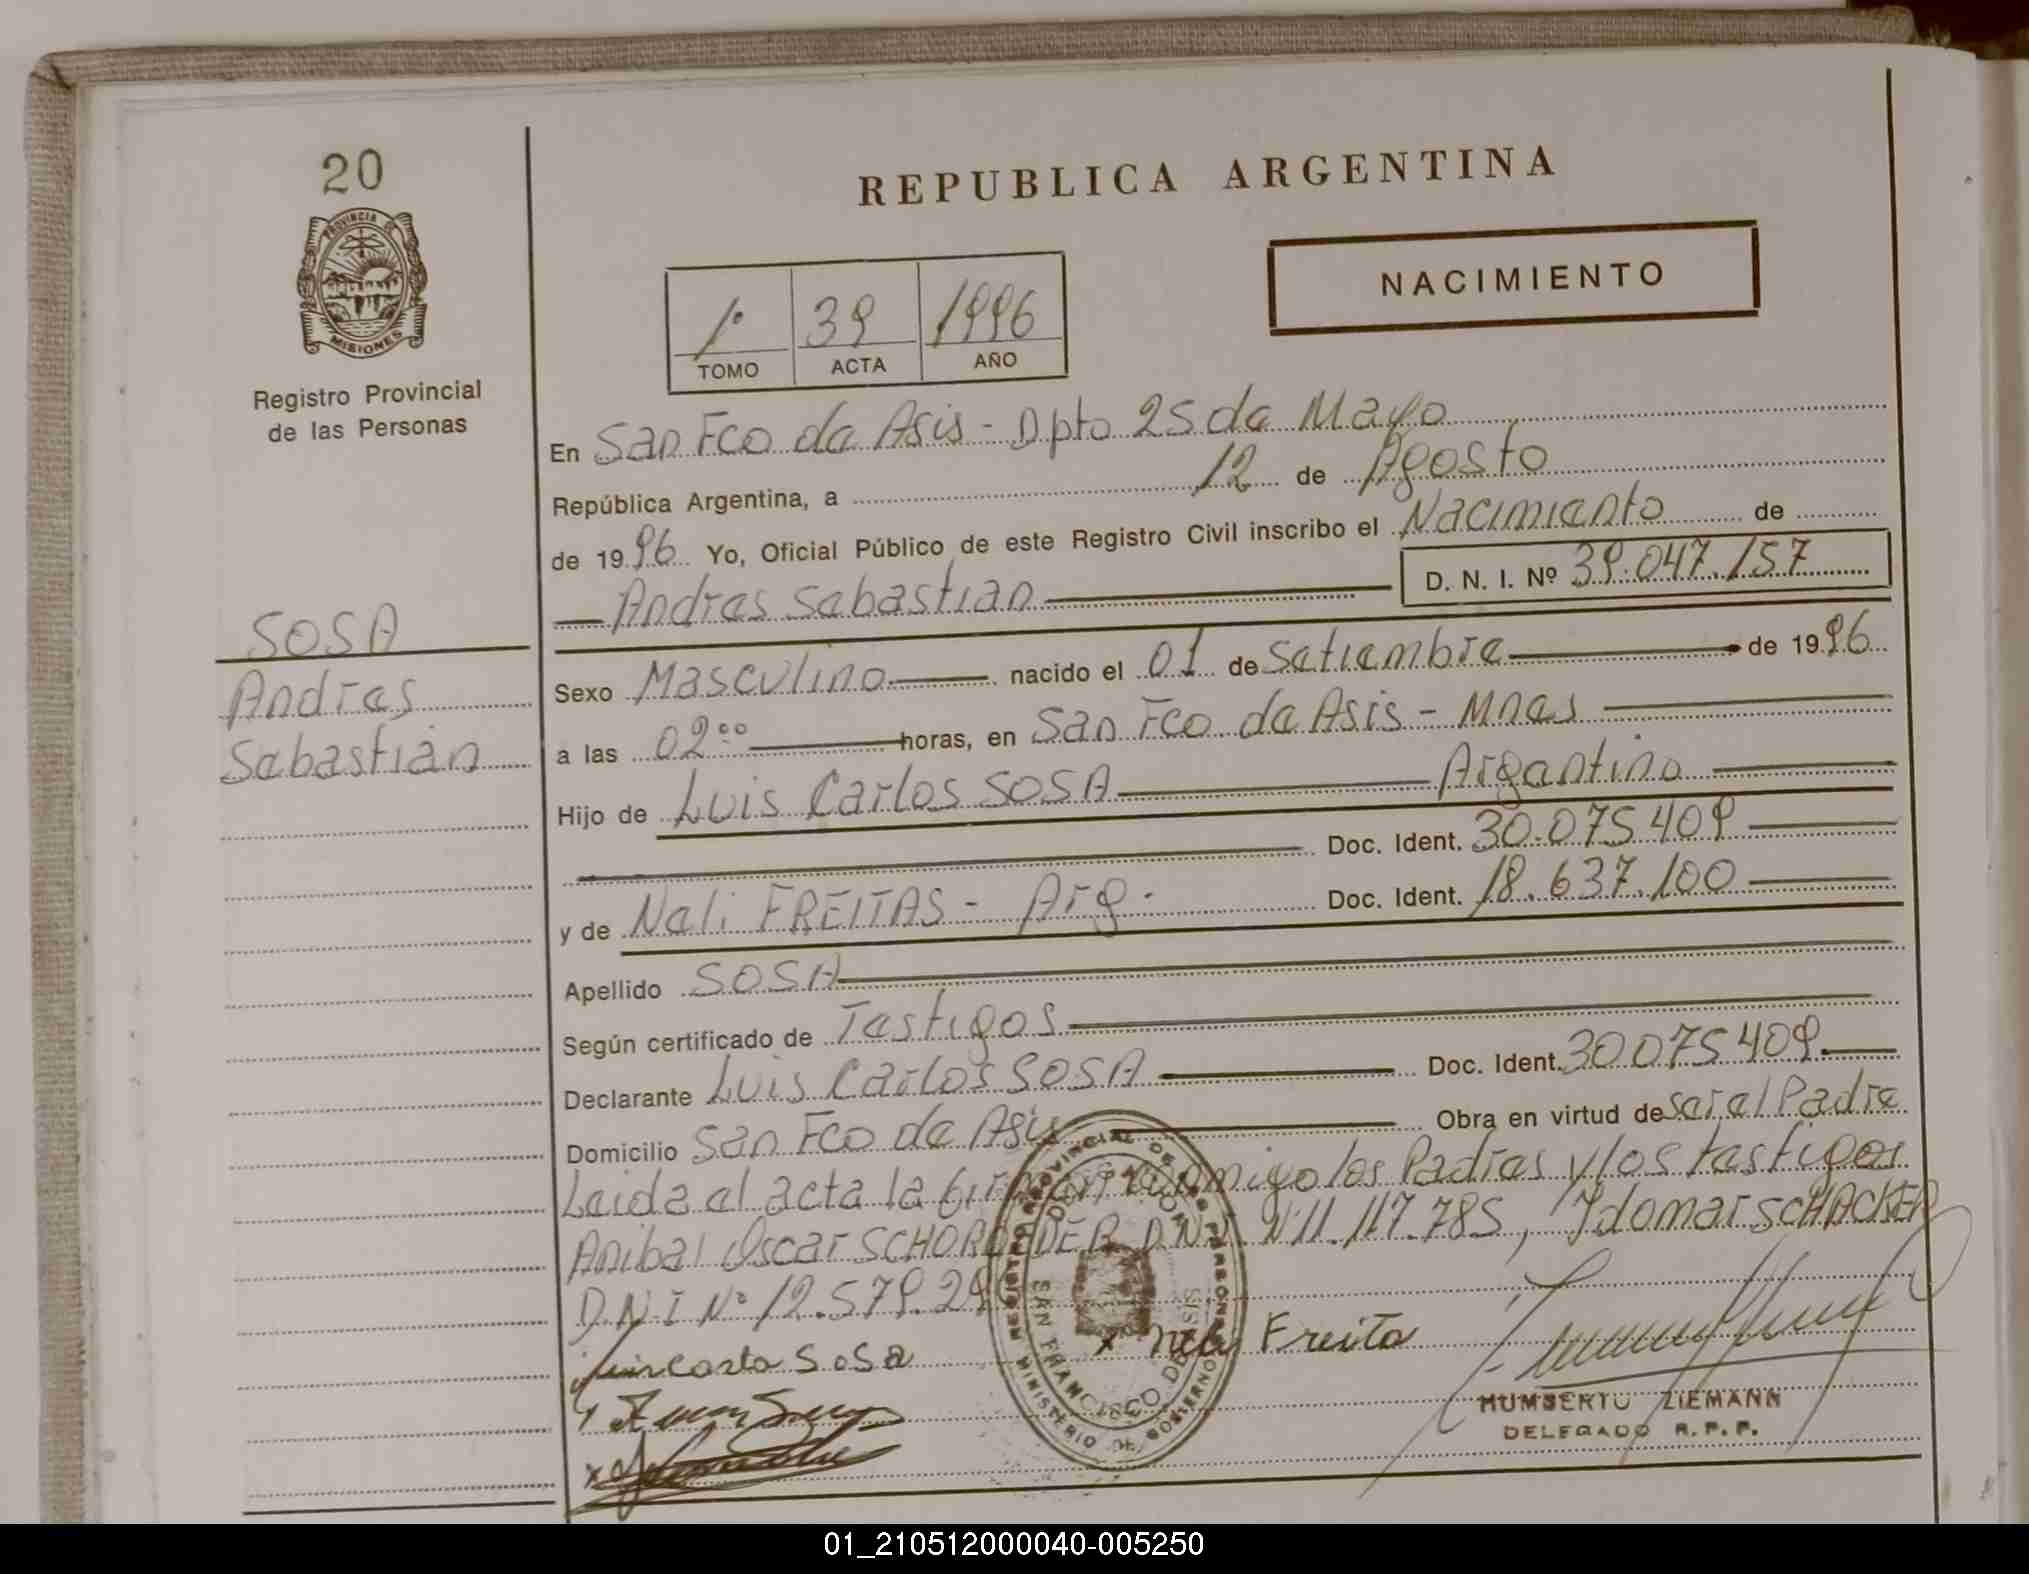 20
PROVINCIA DE
MISIONES
Registro Provincial
de las Personas
REPUBLICA ARGENTINA
NACIMIENTO
1º 39 1996
TOMO ACTA AÑO
En San Fco de Asis - Dpto 25 de Mayo
República Argentina, a 12 de Agosto
de 1996 Yo, Oficial Público de este Registro Civil inscribo el Nacimiento de
Andres Sebastian D. N. I. Nº 39.047.157
SOSA
Andres
Sebastián
Sexo Masculino nacido el 01 de Setiembre de 1996
a las 02⁰⁰ horas, en San Fco de Asis - Mnes
Hijo de Luis Carlos SOSA Argentino
Doc. Ident. 30.075.409
y de Neli FREITAS - Arg. Doc. Ident. 18.637.100
Apellido SOSA
Según certificado de Testigos
Declarante Luis Carlos SOSA Doc. Ident. 30.075.409
Domicilio San Fco de Asis Obra en virtud de ser el Padre
Leida el acta la firman conmigo los Padres y los testigos
Anibal Oscar SCHOROEDER D.N.I. Nº 11.117.785, Idomar SCHACKER
D.N.I Nº 12.579.29
Luis Carlo SoSa x Neli Freita
REGISTRO PROVINCIAL DE LAS PERSONAS
MINISTERIO DE GOBIERNO
SAN FRANCISCO DE ASIS
HUMBERTO ZIEMANN
DELEGADO R. P. P.
01_210512000040-005250